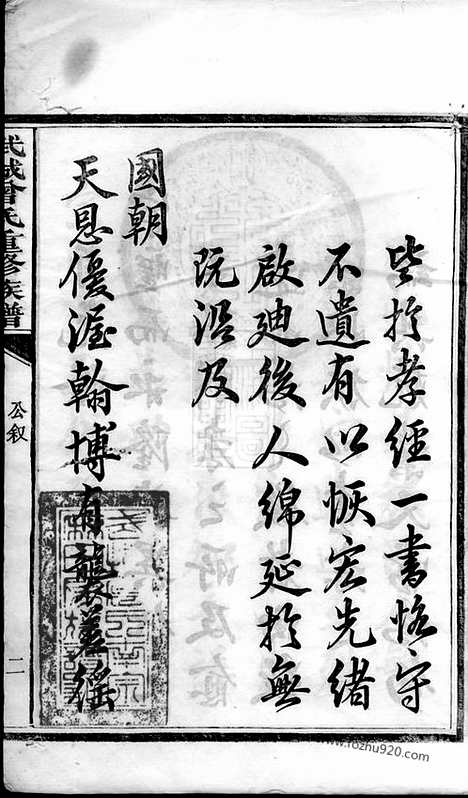 皆於孝經一書恪守
不遺有以恢宏先緒
啟廸後人綿延於無
既沿及
國朝
天恩優渥翰博有襲差徭
武城曾氏重修族譜
公叙
二
www.fozhu920.com